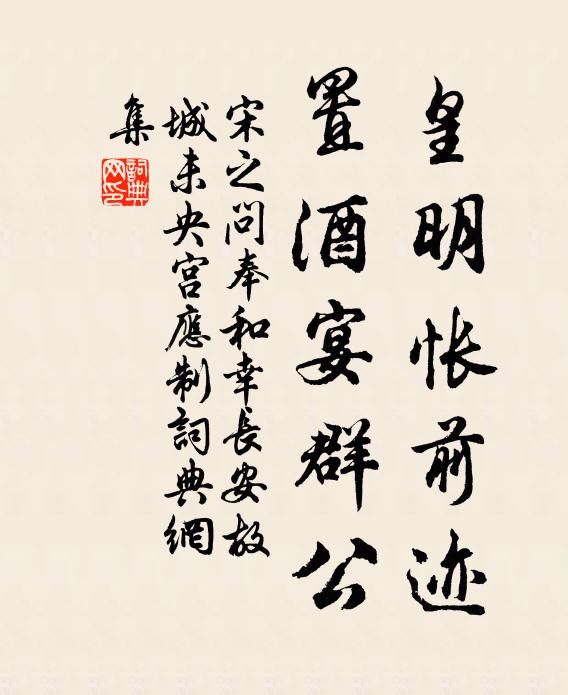 皇明悵前迹
置酒宴群公
宋之问奉和幸長安故
城未央宫應制詞典網
集
詞典网印